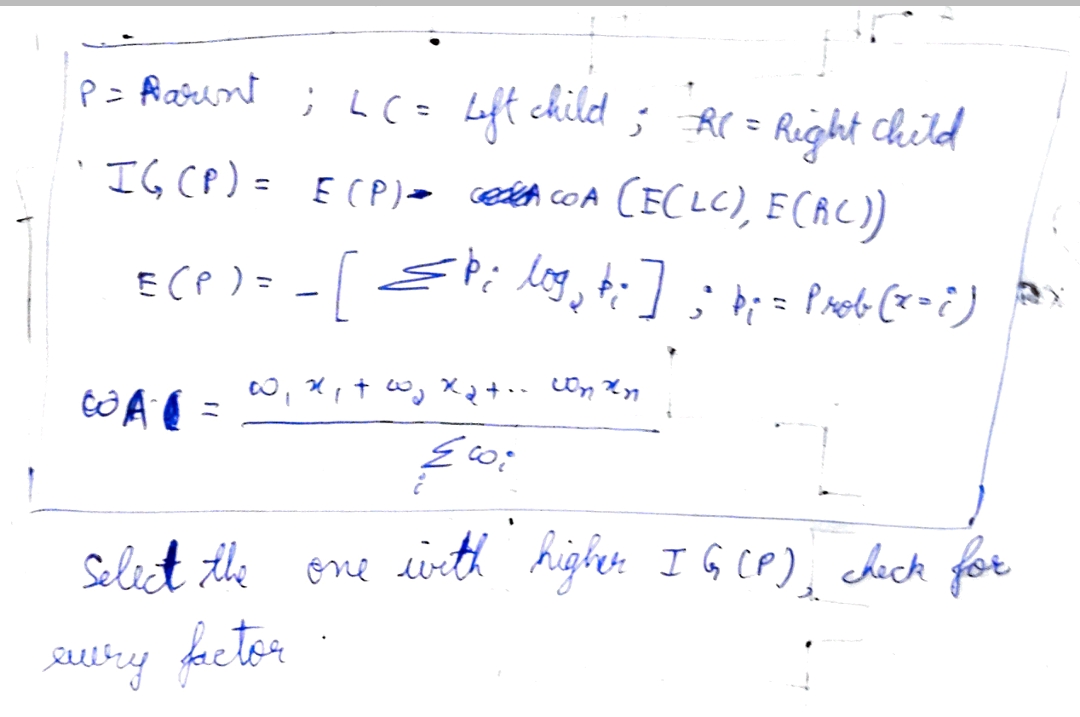 P = Parent ; LC = Left child ; RC = Right child
IG (P) = E (P) - ωA (E(LC), E(RC))
E (P) = - [ Σ pᵢ log₂ pᵢ ] ; pᵢ = Prob (x = i)
ωA = ω₁ x₁ + ω₂ x₂ + .. ωn xn
Σ ωᵢ
i
Select the one with higher IG (P), check for
every factor